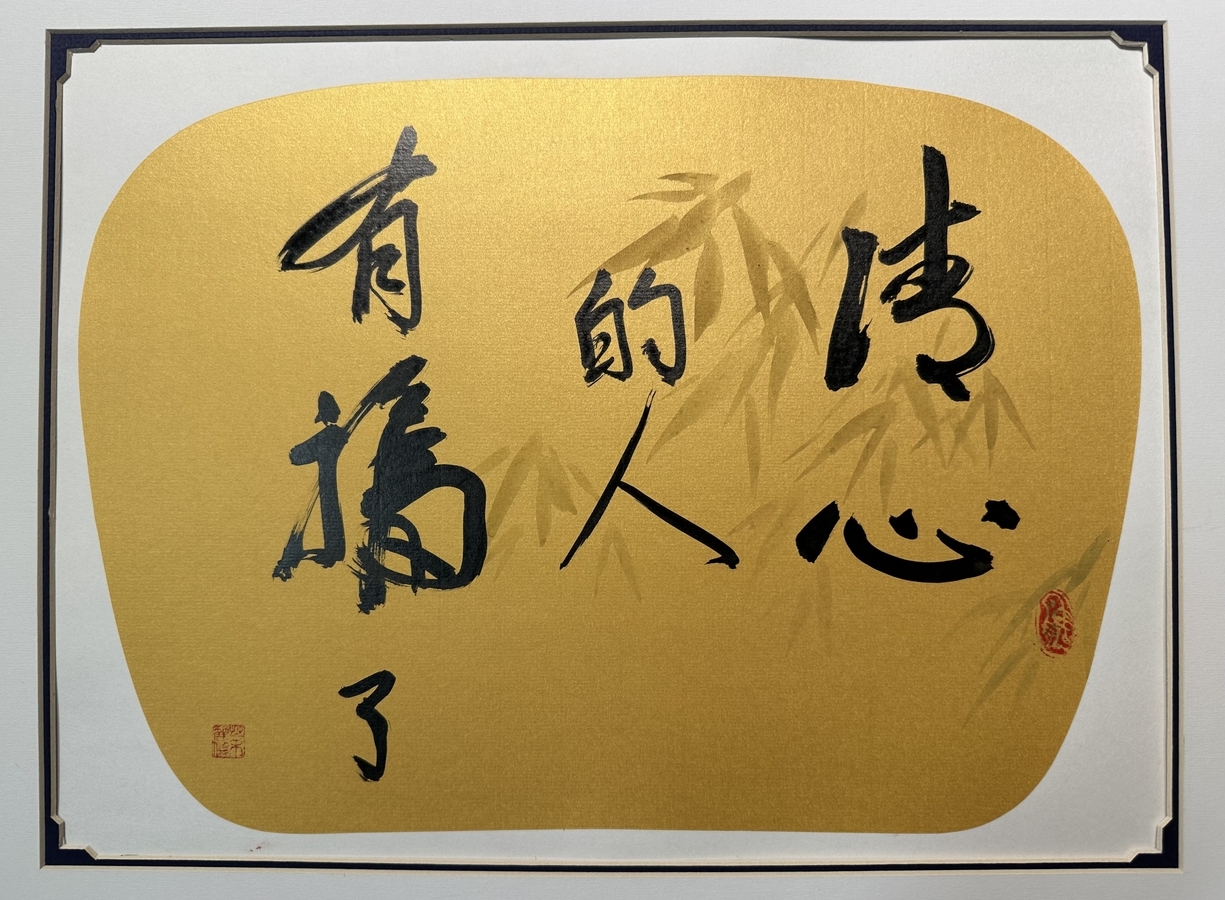 清心
的人
有福了